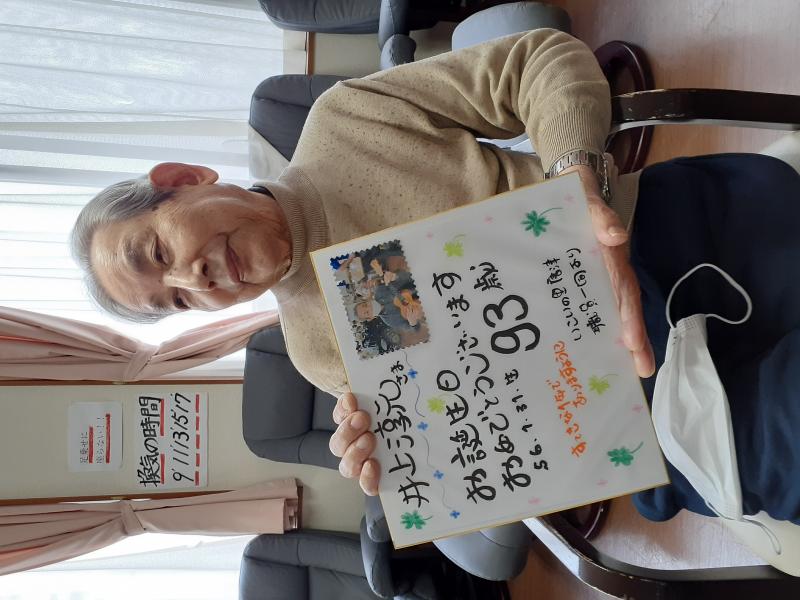 足乗せに
座らない!!
換気の時間
9/11/13/15/17
井上 さま
お誕生日
おめでとうございます
S6.1.31.生 93歳
すてきな年で
ありますように
いこいの里
職員一同より